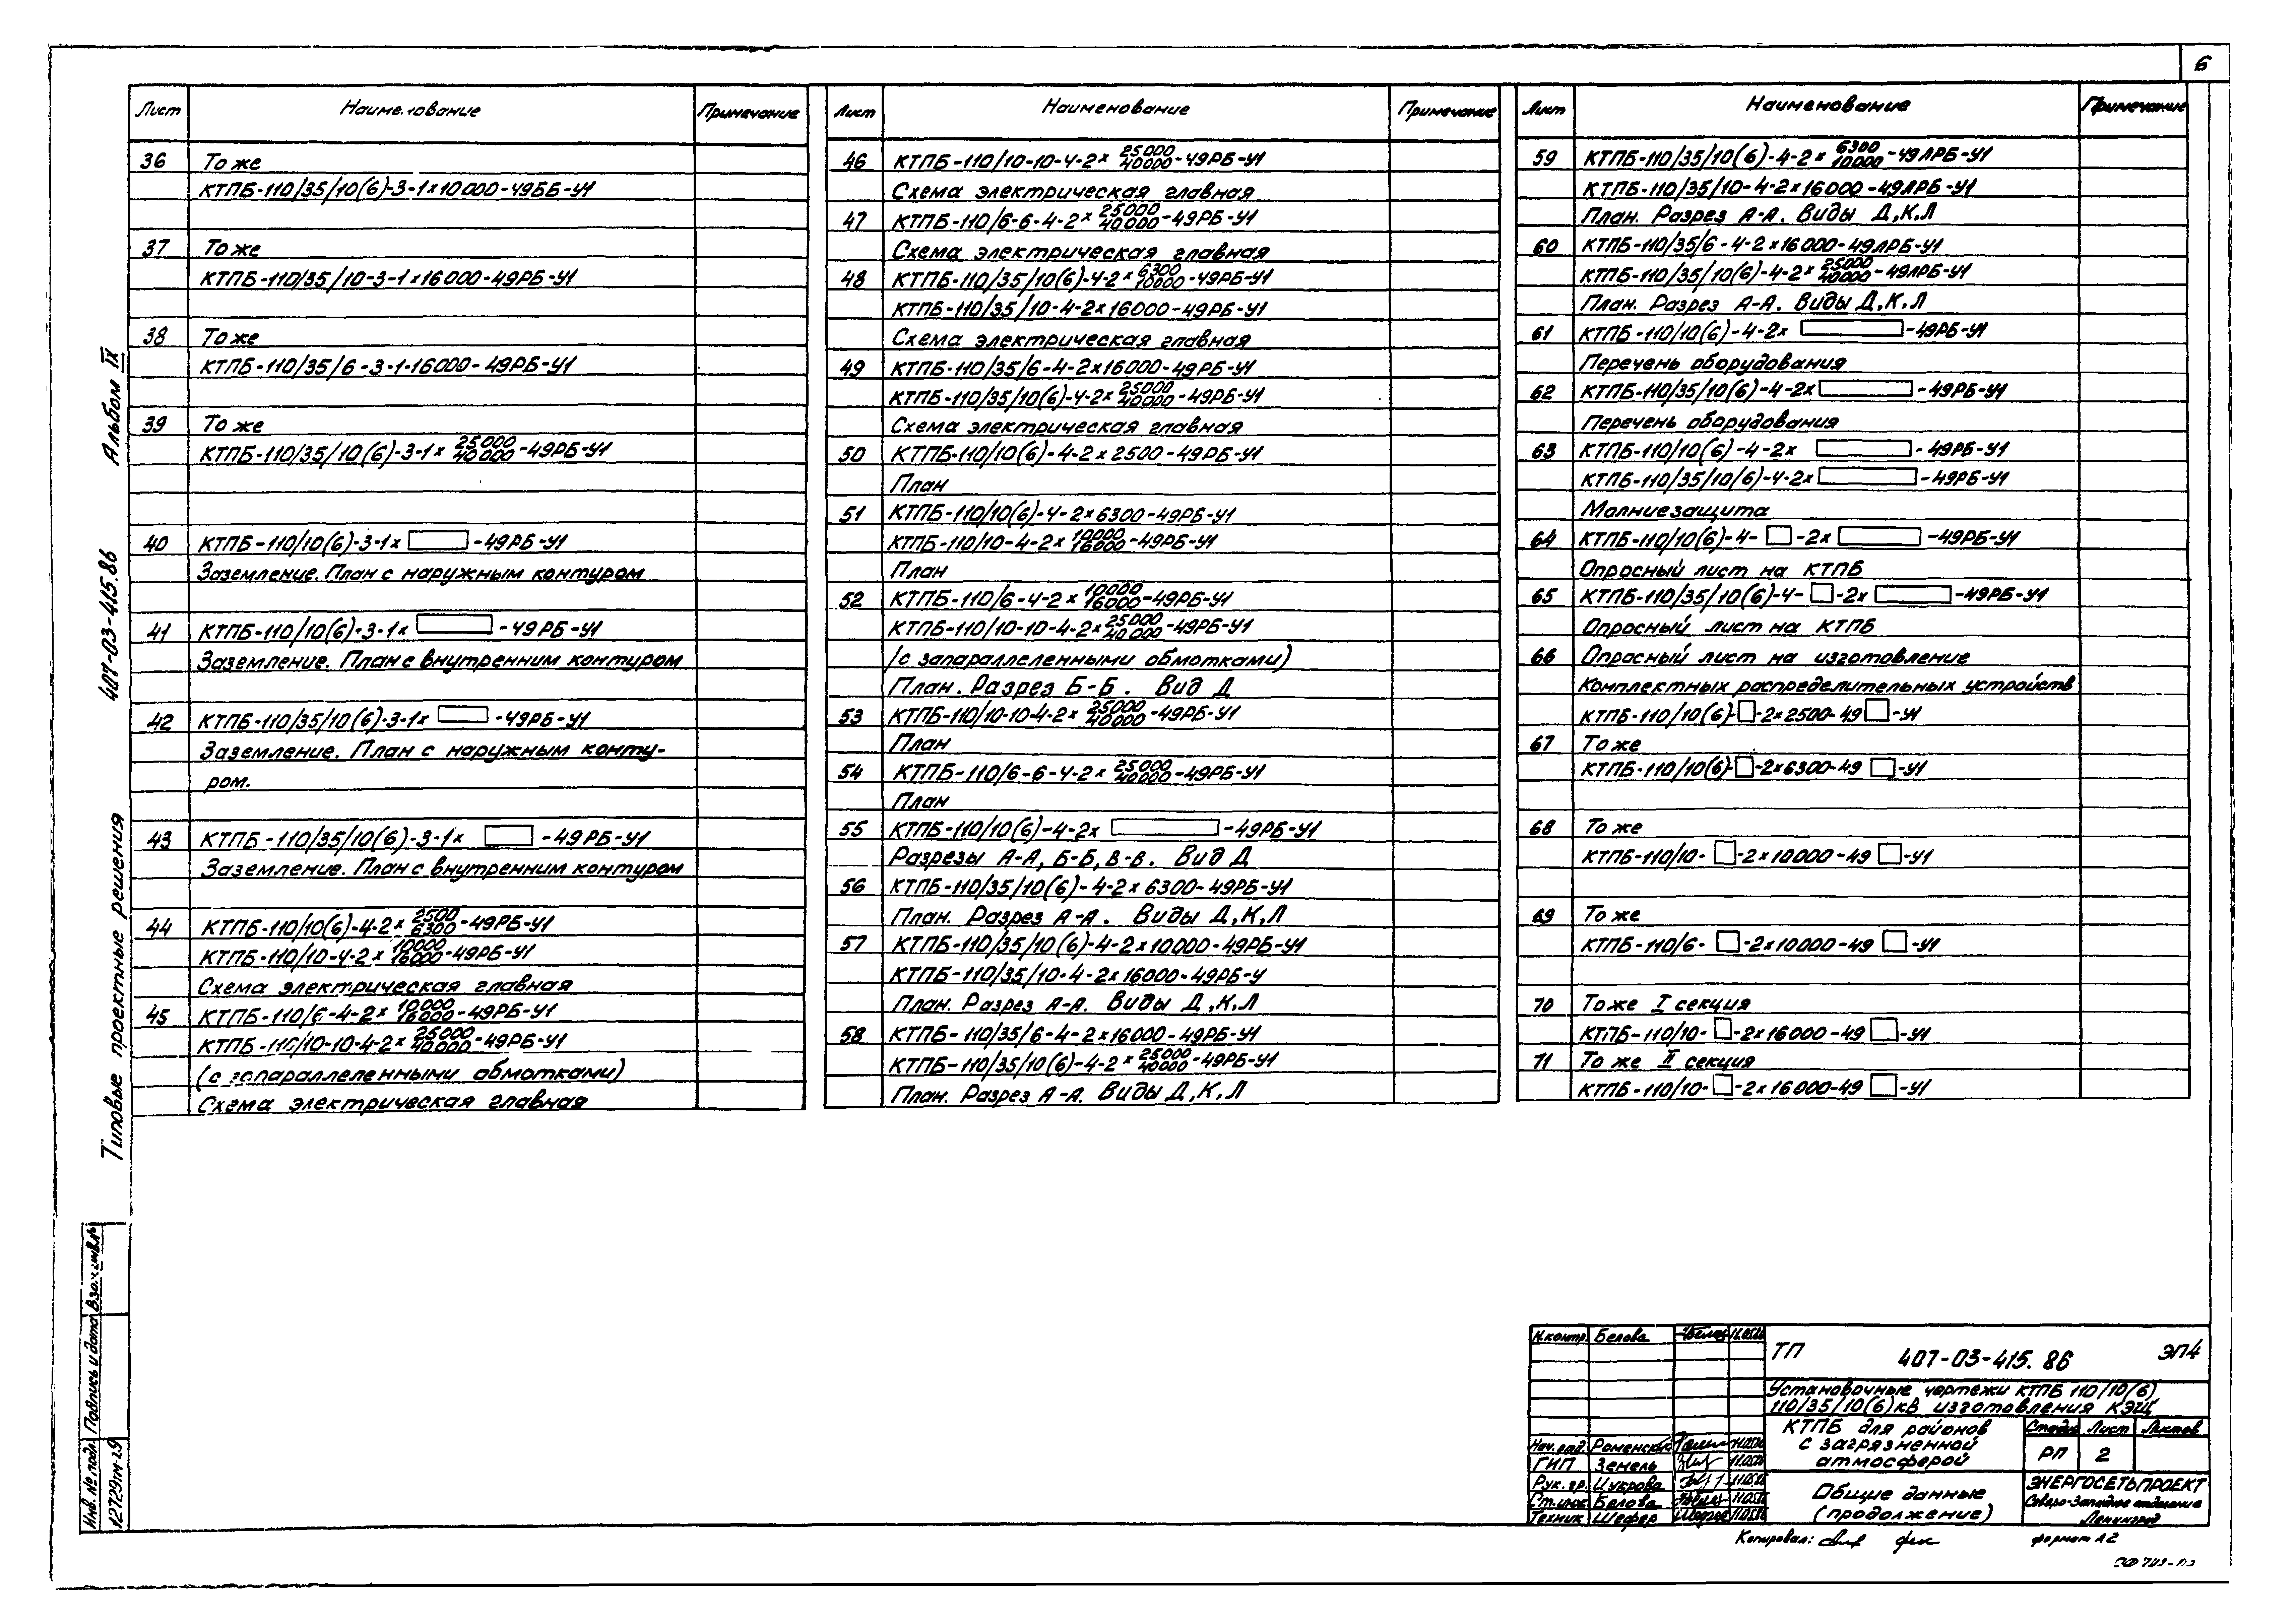 6
Лист Наименование Примечание
36 То же
КТПБ-110/35/10(6)-3-1х10000-49ББ-У1
37 То же
КТПБ-110/35/10-3-1х16000-49РБ-У1
38 То же
КТПБ-110/35/6-3-1-16000-49РБ-У1
39 То же
КТПБ-110/35/10(6)-3-1х 25000/40000-49РБ-У1
40 КТПБ-110/10(6)-3-1х -49РБ-У1
Заземление. План с наружным контуром
41 КТПБ-110/10(6)-3-1х -49РБ-У1
Заземление. План с внутренним контуром
42 КТПБ-110/35/10(6)-3-1х -49РБ-У1
Заземление. План с наружным конту-
ром.
43 КТПБ-110/35/10(6)-3-1х -49РБ-У1
Заземление. План с внутренним контуром
44 КТПБ-110/10(6)-4-2х 2500/6300-49РБ-У1
КТПБ-110/10-4-2х 10000/16000-49РБ-У1
Схема электрическая главная
45 КТПБ-110/6-4-2х 10000/16000-49РБ-У1
КТПБ-110/10-10-4-2х 25000/40000-49РБ-У1
(с запараллеленными обмотками)
Схема электрическая главная
Лист Наименование Примечание
46 КТПБ-110/10-10-4-2х 25000/40000-49РБ-У1
Схема электрическая главная
47 КТПБ-110/6-6-4-2х 25000/40000-49РБ-У1
Схема электрическая главная
48 КТПБ-110/35/10(6)-4-2х 6300/10000-49РБ-У1
КТПБ-110/35/10-4-2х16000-49РБ-У1
Схема электрическая главная
49 КТПБ-110/35/6-4-2х16000-49РБ-У1
КТПБ-110/35/10(6)-4-2х 25000/40000-49РБ-У1
Схема электрическая главная
50 КТПБ-110/10(6)-4-2х2500-49РБ-У1
План
51 КТПБ-110/10(6)-4-2х6300-49РБ-У1
КТПБ-110/10-4-2х 10000/16000-49РБ-У1
План
52 КТПБ-110/6-4-2х 10000/16000-49РБ-У1
КТПБ-110/10-10-4-2х 25000/40000-49РБ-У1
(с запараллеленными обмотками)
План. Разрез Б-Б. Вид Д
53 КТПБ-110/10-10-4-2х 25000/40000-49РБ-У1
План
54 КТПБ-110/6-6-4-2х 25000/40000-49РБ-У1
План
55 КТПБ-110/10(6)-4-2х -49РБ-У1
Разрезы А-А, Б-Б, В-В. Вид Д
56 КТПБ-110/35/10(6)-4-2х6300-49РБ-У1
План. Разрез А-А. Виды Д,К,Л
57 КТПБ-110/35/10(6)-4-2х10000-49РБ-У1
КТПБ-110/35/10-4-2х16000-49РБ-У
План. Разрез А-А. Виды Д,К,Л
58 КТПБ-110/35/6-4-2х16000-49РБ-У1
КТПБ-110/35/10(6)-4-2х 25000/40000-49РБ-У1
План. Разрез А-А. Виды Д,К,Л
Лист Наименование Примечание
59 КТПБ-110/35/10(6)-4-2х 6300/10000-49ЛРБ-У1
КТПБ-110/35/10-4-2х16000-49ЛРБ-У1
План. Разрез А-А. Виды Д,К,Л
60 КТПБ-110/35/6-4-2х16000-49ЛРБ-У1
КТПБ-110/35/10(6)-4-2х 25000/40000-49ЛРБ-У1
План. Разрез А-А. Виды Д,К,Л
61 КТПБ-110/10(6)-4-2х -49РБ-У1
Перечень оборудования
62 КТПБ-110/35/10(6)-4-2х -49РБ-У1
Перечень оборудования
63 КТПБ-110/10(6)-4-2х -49РБ-У1
КТПБ-110/35/10/6)-4-2х -49РБ-У1
Молниезащита
64 КТПБ-110/10(6)-4- -2х -49РБ-У1
Опросный лист на КТПБ
65 КТПБ-110/35/10(6)-4- -2х -49РБ-У1
Опросный лист на КТПБ
66 Опросный лист на изготовление
Комплектных распределительных устройств
КТПБ-110/10(6)- -2х2500-49 -У1
67 То же
КТПБ-110/10(6)- -2х6300-49 -У1
68 То же
КТПБ-110/10- -2х10000-49 -У1
69 То же
КТПБ-110/6- -2х10000-49 -У1
70 То же I секция
КТПБ-110/10- -2х16000-49 -У1
71 То же II секция
КТПБ-110/10- -2х16000-49 -У1
Типовые проектные решения 407-03-415.86 Альбом IX
Инв. № подл. Подпись и дата Взам. инв.№
12729тм-т9
Н.контр. Белова
Нач. рад. Роменский
ГИП Земель
Рук. гр. Цукрова
Ст. инж. Белова
Техник Шефер
ТП 407-03-415.86 ЭП4
Установочные чертежи КТПБ 110/10(6)
110/35/10(6)кВ изготовления КЭЩ
КТПБ для районов
с загрязненной
атмосферой
Стадия Лист Листов
РП 2
Общие данные
(продолжение)
ЭНЕРГОСЕТЬПРОЕКТ
Северо-Западное отделение
Ленинград
Копировал:
формат А2